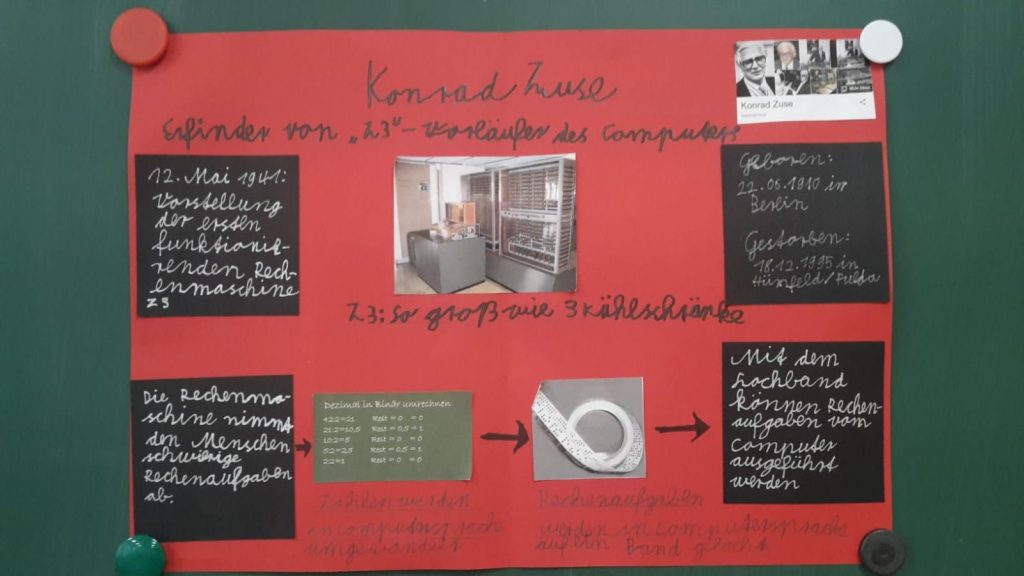 Konrad Zuse
Konrad Zuse
Erfinder von „Z3"-Vorläufer des Computers
12. Mai 1941:
Vorstellung
der ersten
funktionie-
renden Rech-
enmaschine
Z3
Geboren:
22.06.1910 in
Berlin
Gestorben:
18.12.1995 in
Hünfeld/Fulda
Z3: so groß wie 3 Kühlschränke
Die Rechenma-
schine nimmt
den Menschen
schwierige
Rechenaufgaben
ab.
Dezimal in Binär umrechnen
42:2=21 Rest = 0 = 0
21:2=10,5 Rest = 0,5 = 1
10:2=5 Rest = 0 = 0
5:2=2,5 Rest = 0,5 = 1
2:2=1 Rest = 0 = 0
Zahlen wurden
in computersprache
umgewandelt
Rechenaufgaben
werden in computersprache
auf ein Band gelocht
Mit dem
Lochband
können Rechen-
aufgaben vom
Computer
ausgeführt
werden